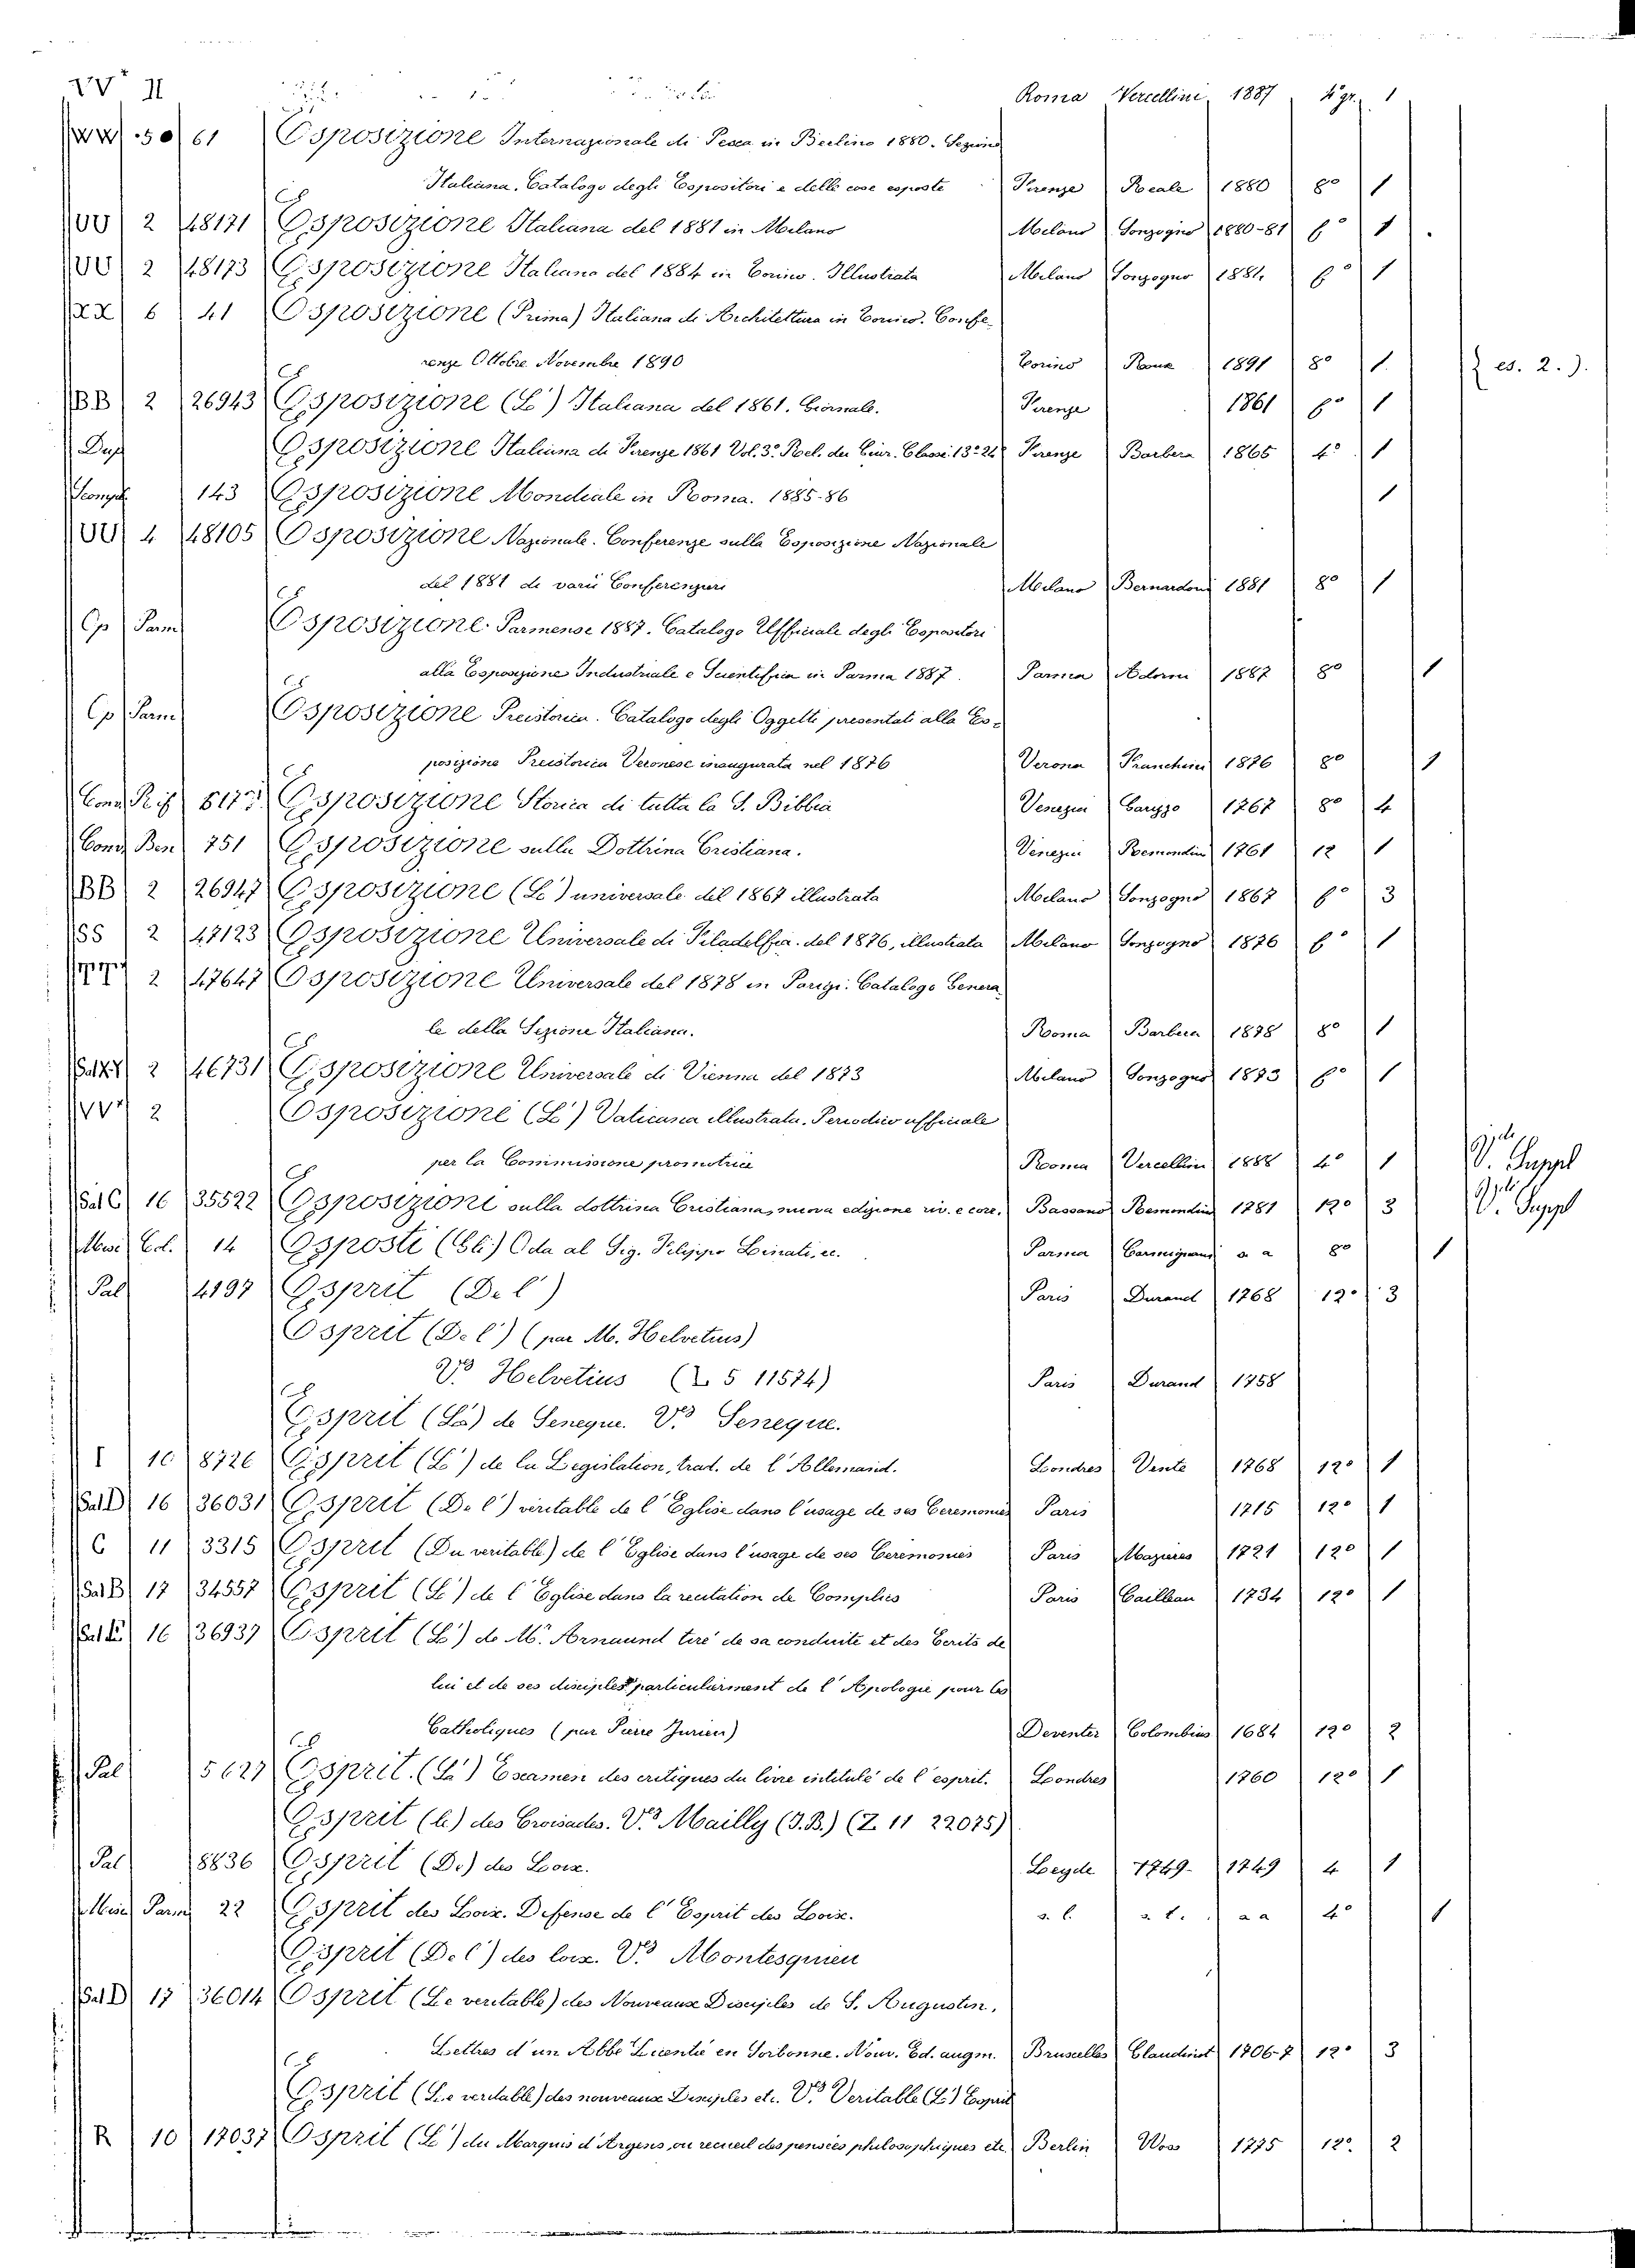 VV II Roma Vercellini 1887 4° gr. 1
WW 50 61 Esposizione Internazionale di Pesca in Berlino 1880. Sezione
Italiana. Catalogo degli Espositori e delle cose esposte Firenze Reale 1880 8° 1
UU 2 48171 Esposizione Italiana del 1881 in Milano Milano Sonzogno 1880-81 f° 1
UU 2 48173 Esposizione Italiana del 1884 in Torino. Illustrata Milano Sonzogno 1884 f° 1
XX 6 41 Esposizione (Prima) Italiana di Architettura in Torino. Confe-
renze Ottobre Novembre 1890 Torino Roux 1891 8° 1 (es. 2.).
BB 2 26943 Esposizione (L') Italiana del 1861. Giornale. Firenze 1861 f° 1
Dup Esposizione Italiana di Firenze 1861 Vol. 3° Rel. dei Giur. Classi 13ª 24ª Firenze Barbera 1865 4° 1
143 Esposizione Mondiale in Roma. 1885-86 1
UU 4 48105 Esposizione Nazionale. Conferenze sulla Esposizione Nazionale
del 1881 di varii Conferenzieri Milano Bernardoni 1881 8° 1
Op Parm Esposizione Parmense 1887. Catalogo Ufficiale degli Espositori
alla Esposizione Industriale e Scientifica in Parma 1887. Parma Adorni 1887 8° 1
Op Parm Esposizione Preistorica. Catalogo degli Oggetti presentati alla Es-
posizione Preistorica Veronese inaugurata nel 1876 Verona Franchini 1876 8° 1
Conv. Rif 5117 Esposizione Storica di tutta la S. Bibbia Venezia Garizzo 1767 8° 4
Conv. Ben 751 Esposizione sulla Dottrina Cristiana. Venezia Remondini 1761 12 1
BB 2 26947 Esposizione (L') universale del 1867 illustrata Milano Sonzogno 1867 f° 3
SS 2 47123 Esposizione Universale di Filadelfia del 1876, illustrata Milano Sonzogno 1876 f° 1
2 47647 Esposizione Universale del 1878 in Parigi. Catalogo Genera
le della Sezione Italiana. Roma Barbera 1878 8° 1
2 46731 Esposizione Universale di Vienna del 1873 Milano Sonzogno 1873 f° 1
VV 2 Esposizione (L') Vaticana illustrata. Periodico ufficiale
per la Commissione promotrice Roma Vercellini 1888 4° 1 V. Suppl
Sal C 16 35522 Esposizioni sulla dottrina Cristiana, nuova edizione riv. e corr. Bassano Remondini 1781 12° 3 V. Suppl
Misc Ed. 14 Esposti (Gli) Oda al Sig. Filippo Linati, ec. Parma Carmignani a a 8° 1
Pal 4197 Esprit (De l') Paris Durand 1768 12° 3
Esprit (De l') (par M. Helvetius)
Vº Helvetius (L 5 11574) Paris Durand 1758
Esprit (L') de Seneque. Vº Seneque.
I 10 8726 Esprit (L') de la Legislation, trad. de l'Allemand. Londres Vente 1768 12° 1
Sal D 16 36031 Esprit (De l') veritable de l'Eglise dans l'usage de ses Ceremonies Paris 1715 12° 1
C 11 3315 Esprit (Du veritable) de l'Eglise dans l'usage de ses Ceremonies Paris Mazieres 1721 12° 1
Sal B 17 34557 Esprit (L') de l'Eglise dans la recitation de Complies Paris Cailleau 1734 12° 1
16 36937 Esprit (L') de M. Arnaund tiré de sa conduite et des Ecrits de
lui et de ses disciples particulierment de l'Apologie pour les
Catholiques (par Pierre Jurieu) Deventer Colombius 1684 12° 2
Pal 5627 Esprit. (L') Examen des critiques du livre intitulé de l'esprit. Londres 1760 12° 1
Esprit (L') des Croisades. Vº Mailly (J.B.) (Z. 11 22075)
Pal 8836 Esprit (De) des Loix. Leyde 1749- 1749 4 1
Misc Parm 22 Esprit des Loix. Defense de l'Esprit des Loix. s. l. s. t. a a 4° 1
Esprit (De l') des loix. Vº Montesquieu
Sal D 17 36014 Esprit (Le veritable) des Nouveaux Disciples de S. Augustin,
Lettres d'un Abbé Licentié en Sorbonne. Nouv. Ed. augm. Bruxelles Claudinot 1706-7 12° 3
Esprit (Le veritable) des nouveaux Disciples etc. Vº Veritable (L') Esprit
R 10 17037 Esprit (L') du Marquis d'Argens, ou recueil des pensées philosophiques etc. Berlin Voss 1775 12° 2